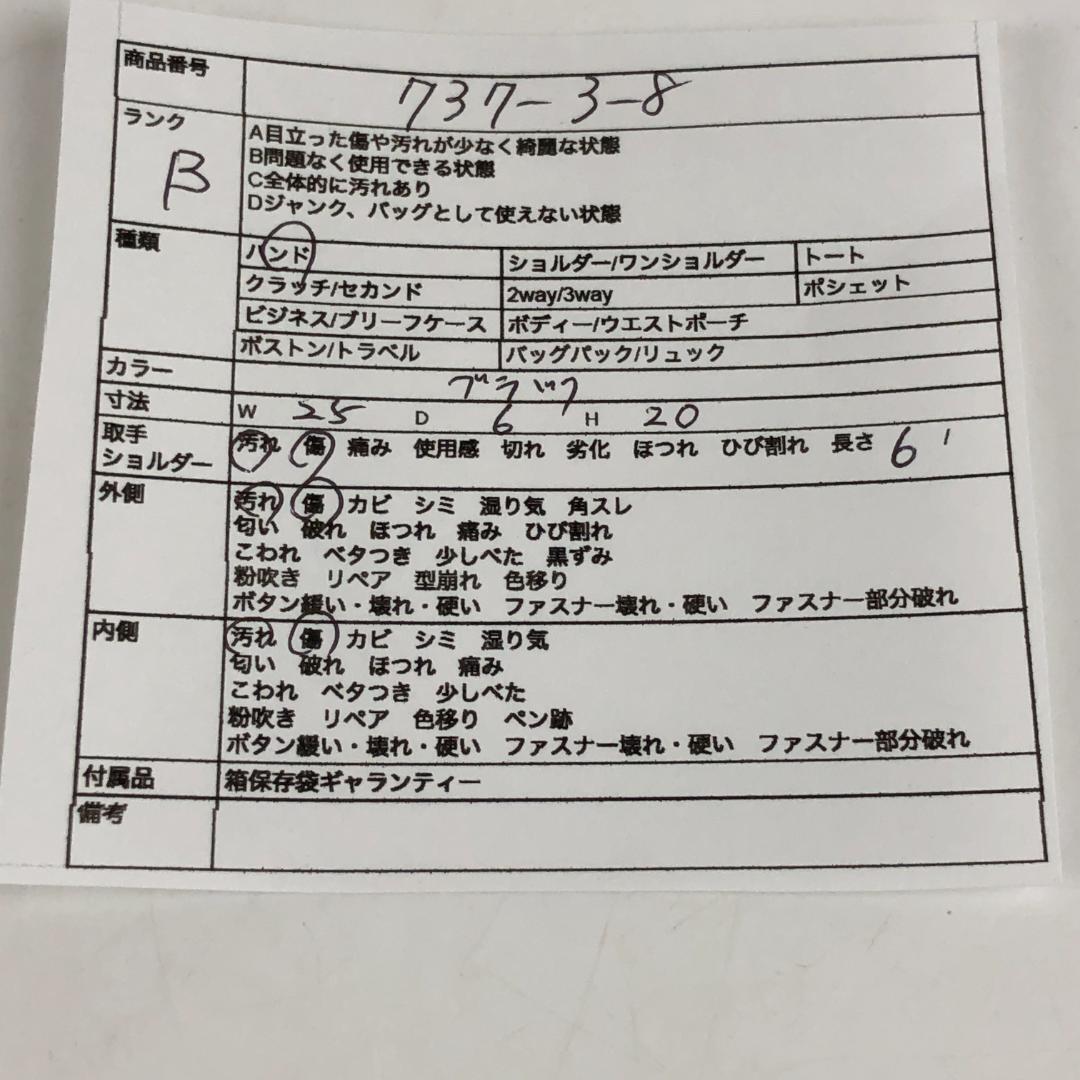 商品番号 737-3-8
ランク B
A目立った傷や汚れが少なく綺麗な状態
B問題なく使用できる状態
C全体的に汚れあり
Dジャンク、バッグとして使えない状態
種類 ハンド ショルダー/ワンショルダー トート
クラッチ/セカンド 2way/3way ポシェット
ビジネス/ブリーフケース ボディー/ウエストポーチ
ボストン/トラベル バッグパック/リュック
カラー ブラック
寸法 W 25 D 6 H 20
取手 汚れ 傷 痛み 使用感 切れ 劣化 ほつれ ひび割れ 長さ 6
ショルダー
外側 汚れ 傷 カビ シミ 湿り気 角スレ
匂い 破れ ほつれ 痛み ひび割れ
こわれ ベタつき 少しべた 黒ずみ
粉吹き リペア 型崩れ 色移り
ボタン緩い・壊れ・硬い ファスナー壊れ・硬い ファスナー部分破れ
内側 汚れ 傷 カビ シミ 湿り気
匂い 破れ ほつれ 痛み
こわれ ベタつき 少しべた
粉吹き リペア 色移り ペン跡
ボタン緩い・壊れ・硬い ファスナー壊れ・硬い ファスナー部分破れ
付属品 箱保存袋ギャランティー
備考